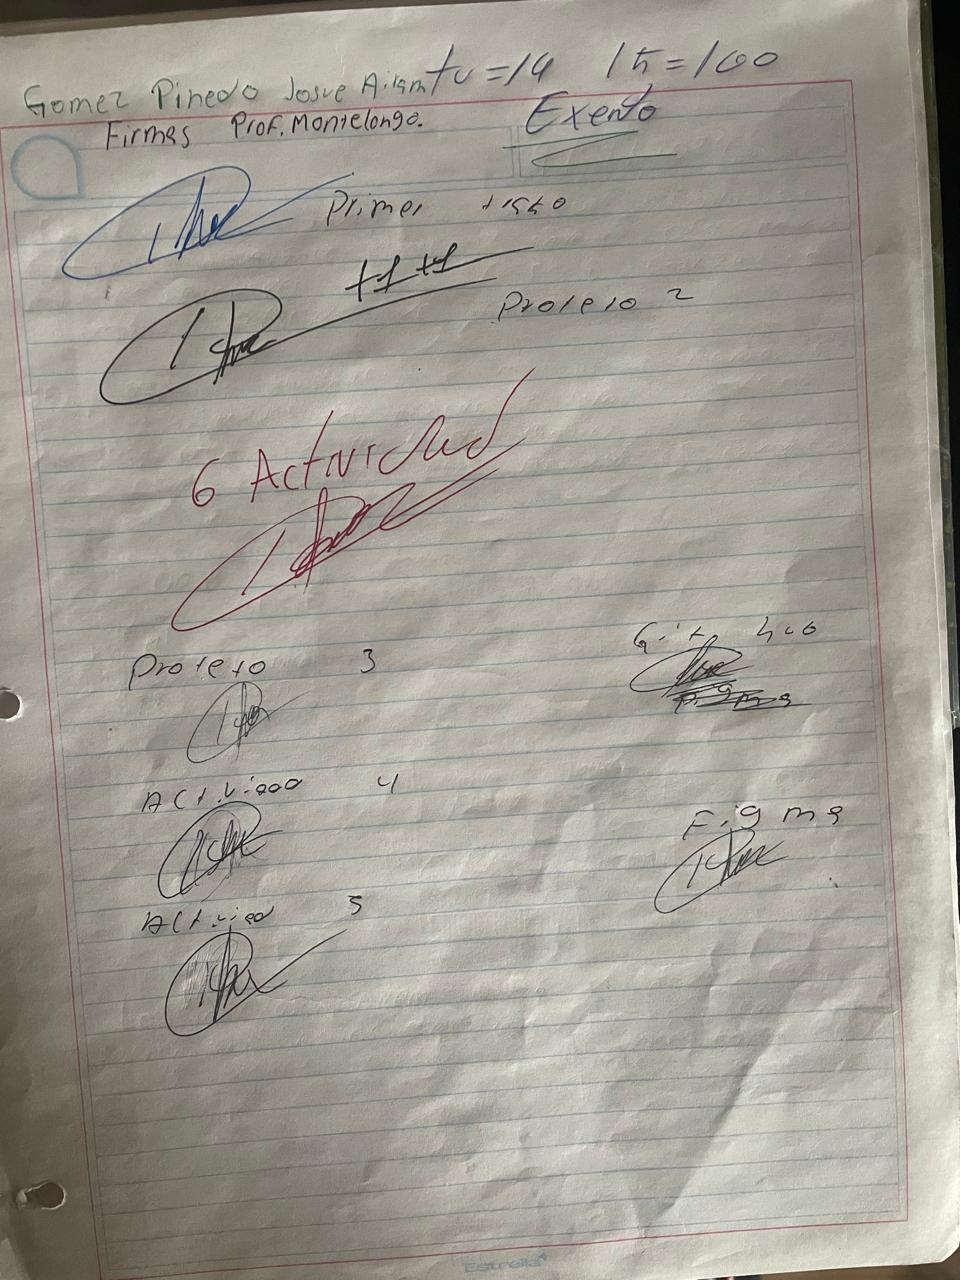 Gomez Pinedo Josue Airam tu=14 15=100
Firmas Prof. Montelongo.
Exento
Primer
+1 +1
Proleto 2
6 Actividad
Proleto 3
Git hub
Figma
Actividad 4
Figma
Actividad 5
Estrella